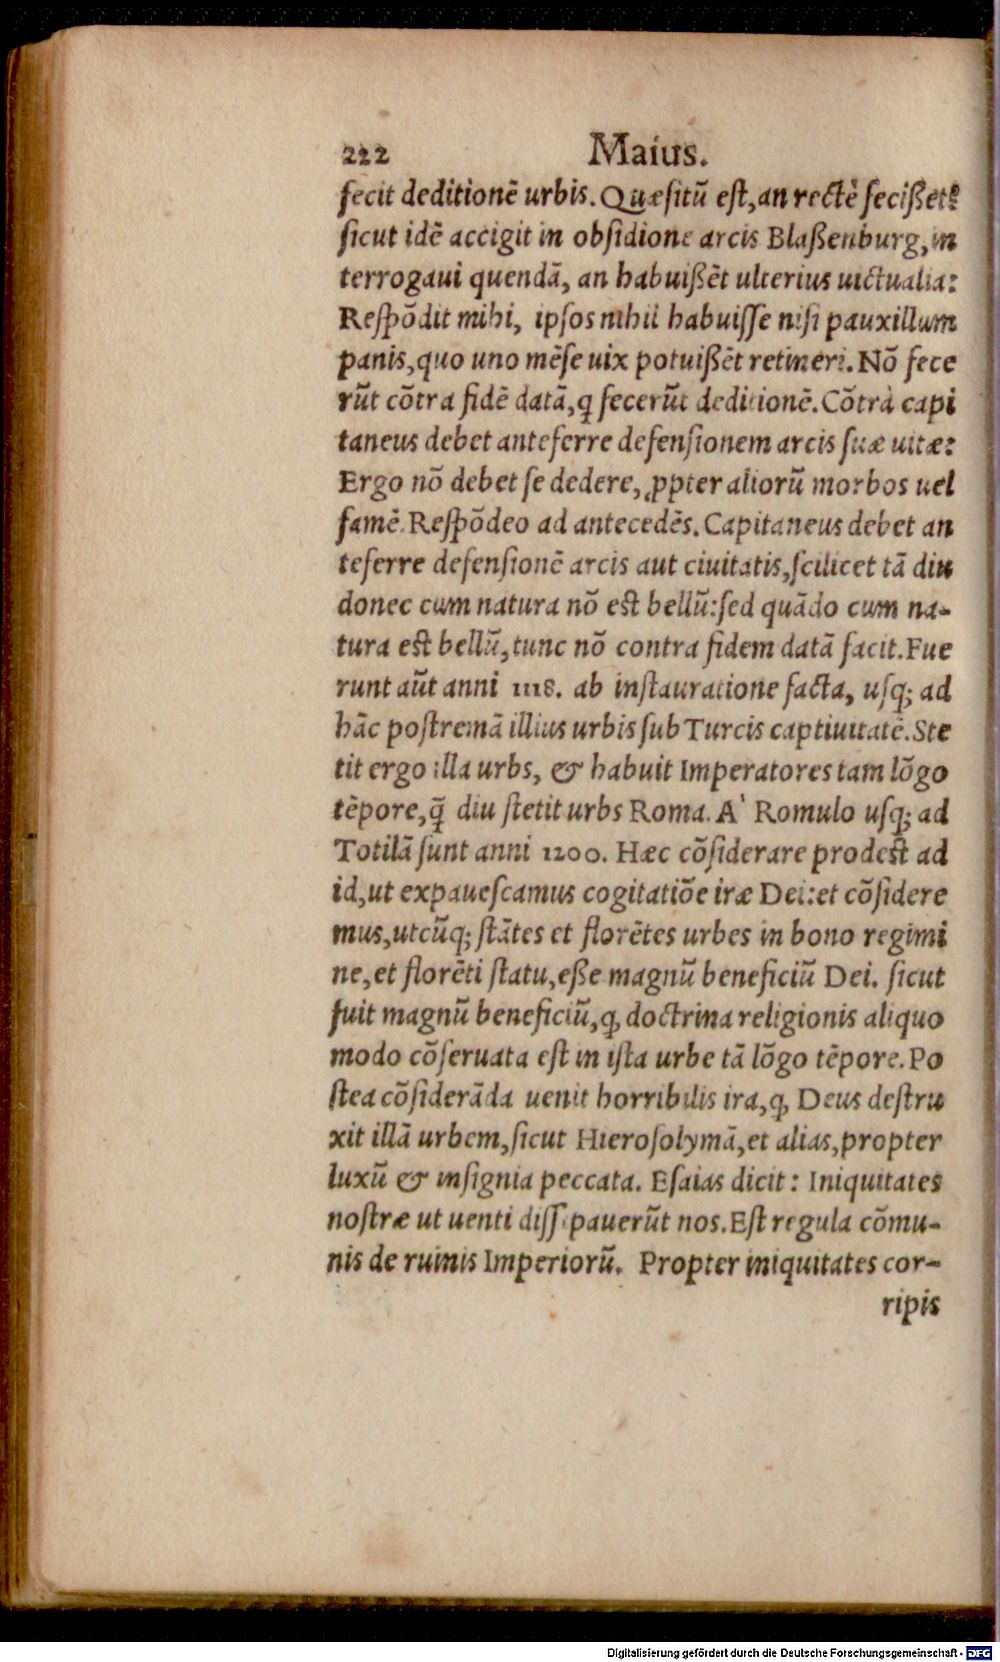 222 Maius.
fecit deditionē urbis. Quæsitū est, an rectè fecißet?
sicut idē accigit in obsidione arcis Blaßenburg, in
terrogaui quendā, an habuißēt ulterius uictualia:
Respōdit mihi, ipsos nihil habuisse nisi pauxillum
panis, quo uno mēse uix potuißēt retineri. Nō fece
rūt cōtra fidē datā, ꝙ fecerūt deditionē. Cōtrà capi
taneus debet anteferre defensionem arcis suæ uitæ:
Ergo nō debet se dedere, ꝓpter aliorū morbos uel
famē. Respōdeo ad antecedēs. Capitaneus debet an
teferre defensionē arcis aut ciuitatis, scilicet tā diu
donec cum natura nō est bellū: sed quādo cum na-
tura est bellū, tunc nō contra fidem datā facit. Fue
runt aūt anni 1118. ab instauratione facta, usq; ad
hāc postremā illius urbis sub Turcis captiuitatē. Ste
tit ergo illa urbs, & habuit Imperatores tam lōgo
tēpore, q̄ diu stetit urbs Roma. A` Romulo usq; ad
Totilā sunt anni 1200. Hæc cōsiderare prodest ad
id, ut expauescamus cogitatiōe iræ Dei: et cōsidere
mus, utcūq; stātes et florētes urbes in bono regimi
ne, et florēti statu, eße magnū beneficiū Dei. sicut
fuit magnū beneficiū, ꝙ doctrina religionis aliquo
modo cōseruata est in ista urbe tā lōgo tēpore. Po
stea cōsiderāda uenit horribilis ira, ꝙ Deus destru
xit illā urbem, sicut Hierosolymā, et alias, propter
luxū & insignia peccata. Esaias dicit: Iniquitates
nostræ ut uenti dissipauerūt nos. Est regula cōmu-
nis de ruinis Imperiorū. Propter iniquitates cor-
ripis
Digitalisierung gefördert durch die Deutsche Forschungsgemeinschaft - DFG